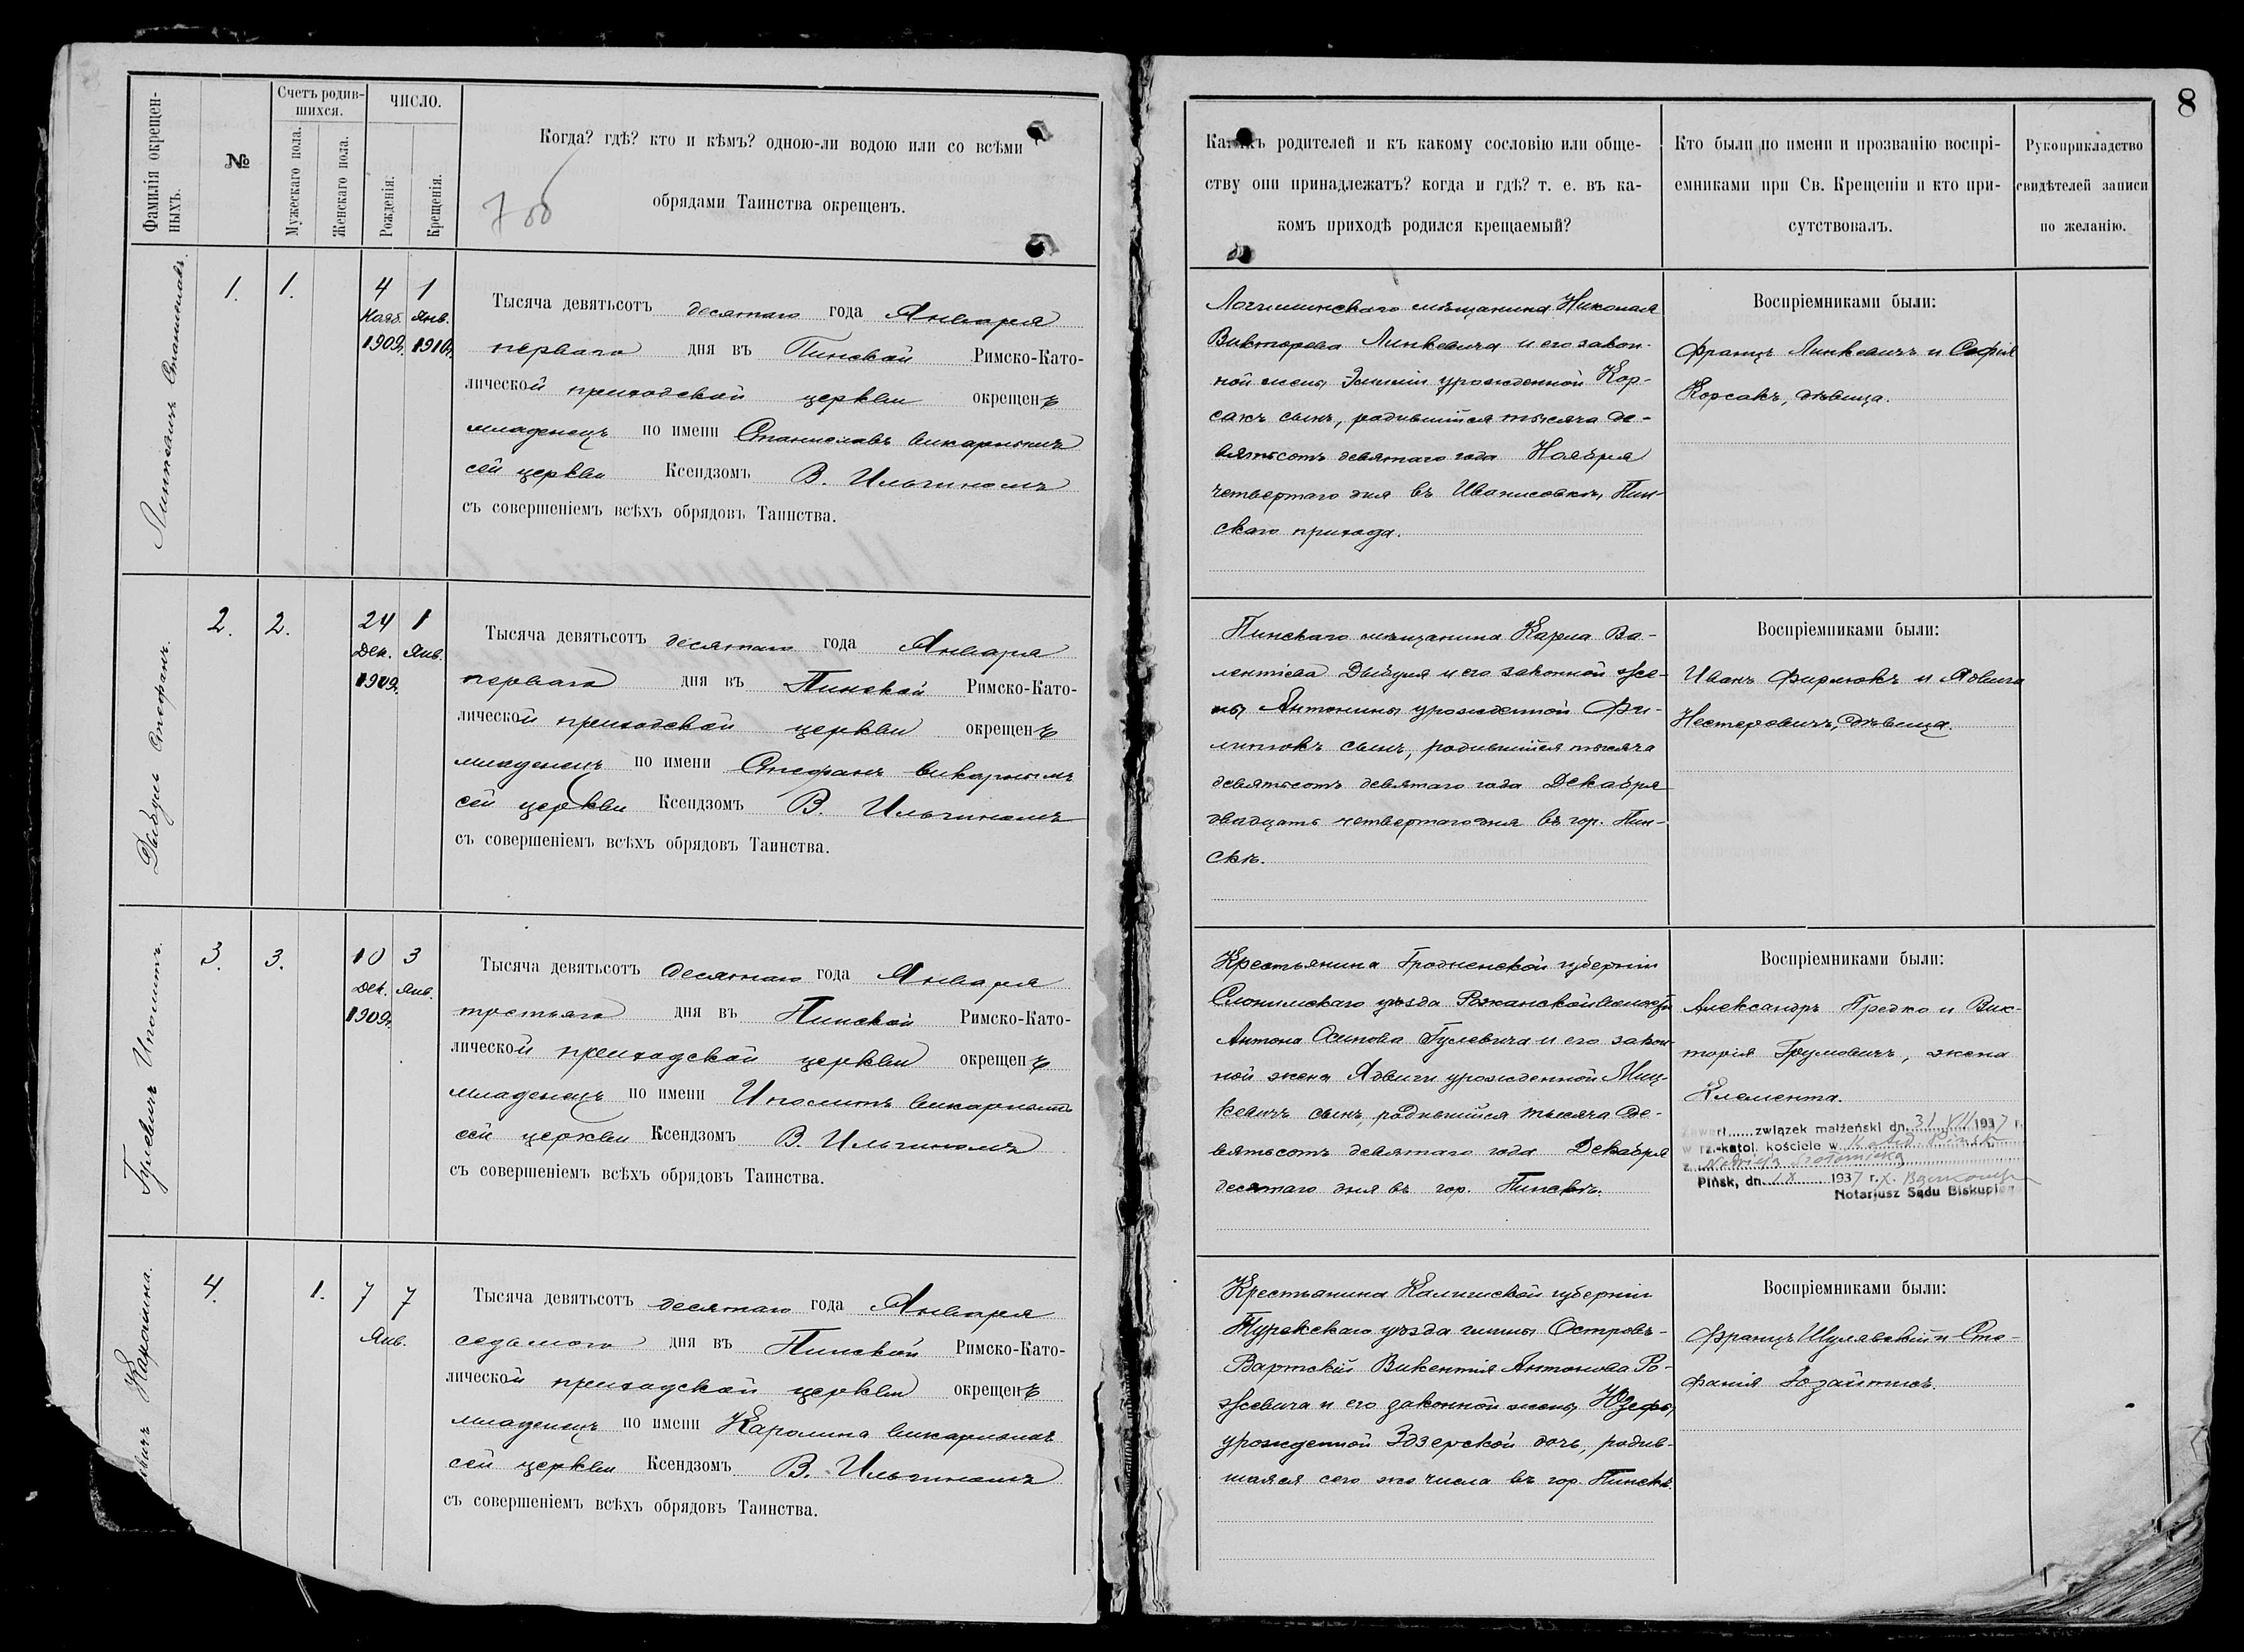 8
Фамилія окрещен-
ныхъ.
№
Счетъ родив-
шихся.
Мужескаго пола.
Женскаго пола.
ЧИСЛО.
Рожденія.
Крещенія.
Когда? гдѣ? кто и кѣмъ? одною-ли водою или со всѣми
обрядами Таинства окрещенъ.
родителей и къ какому сословію или обще-
ству они принадлежатъ? когда и гдѣ? т. е. въ ка-
комъ приходѣ родился крещаемый?
Кто были по имени и прозванію воспрі-
емниками при Св. Крещеніи и кто при-
сутствовалъ.
Рукоприкладство
свидѣтелей записи
по желанію.
Линкевичъ Станиславъ.
1.
1.
4
Нояб.
1909г.
1
Янв.
1910г.
Тысяча девятьсотъ десятаго года Января
перваго дня въ Пинской Римско-Като-
лической приходской церкви окрещенъ
младенецъ по имени Станиславъ викарнымъ
сей церкви Ксендзомъ В. Ильгиномъ
съ совершеніемъ всѣхъ обрядовъ Таинства.
Логишинскаго мѣщанина Николая
Викторова Линкевича и его закон-
ной жены Эмиліи урожденной Кор-
сакъ сынъ, родившійся тысяча де-
вятьсотъ девятаго года Ноября
четвертаго дня въ Иванисовкѣ, Пин-
скаго прихода.
Воспріемниками были:
Францъ Линкевичъ и Софія
Корсакъ, дѣвица.
Дыбуль Стефанъ.
2.
2.
24
Дек.
1909г.
1
Янв.
Тысяча девятьсотъ десятаго года Января
перваго дня въ Пинской Римско-Като-
лической приходской церкви окрещенъ
младенецъ по имени Стефанъ викарнымъ
сей церкви Ксендзомъ В. Ильгиномъ
съ совершеніемъ всѣхъ обрядовъ Таинства.
Пинскаго мѣщанина Карла Ва-
лентіева Дыбуля и его законной же-
ны Антонины урожденной
сынъ, родившійся тысяча
девятьсотъ девятаго года Декабря
двадцать четвертаго дня въ гор. Пин-
скѣ.
Воспріемниками были:
Иванъ и Ядвига
Нестеровичъ, дѣвица.
Гулевичъ Иполитъ.
3.
3.
10
Дек.
1909г.
3
Янв.
Тысяча девятьсотъ десятаго года Января
третьяго дня въ Пинской Римско-Като-
лической приходской церкви окрещенъ
младенецъ по имени Иполитъ викарнымъ
сей церкви Ксендзомъ В. Ильгиномъ
съ совершеніемъ всѣхъ обрядовъ Таинства.
Крестьянина Гродненской губерніи
Слонимскаго уѣзда Рожанской волости
Антона Осипова Гулевича и его закон-
ной жена Ядвиги урожденной Миц-
кевичъ сынъ, родившійся тысяча де-
вятьсотъ девятаго года Декабря
десятаго дня въ гор. Пинскѣ.
Воспріемниками были:
Александръ Предко и Вик-
торія Грумовичъ, жена
Клемента.
Zawarł związek małżeński dn. 31 XII 1937 r.
w rz.-katol. kościele w
z
Pińsk, dn. 1937 r.
Notarjusz Sądu Biskupiego
Каролина.
4.
1.
7
7
Янв.
Тысяча девятьсотъ десятаго года Января
седьмого дня въ Пинской Римско-Като-
лической приходской церкви окрещенъ
младенецъ по имени Каролина викарнымъ
сей церкви Ксендзомъ В. Ильгиномъ
съ совершеніемъ всѣхъ обрядовъ Таинства.
Крестьянина Калишской губерніи
Турекскаго уѣзда гмины Островъ-
Вартскій Викентія Антонова Ро-
жевича и его законной жены Юзефы,
урожденной Здзерской дочь, родив-
шаяся сего же числа въ гор. Пинскѣ.
Воспріемниками были:
Францъ Шулявскій и Сте-
фанія